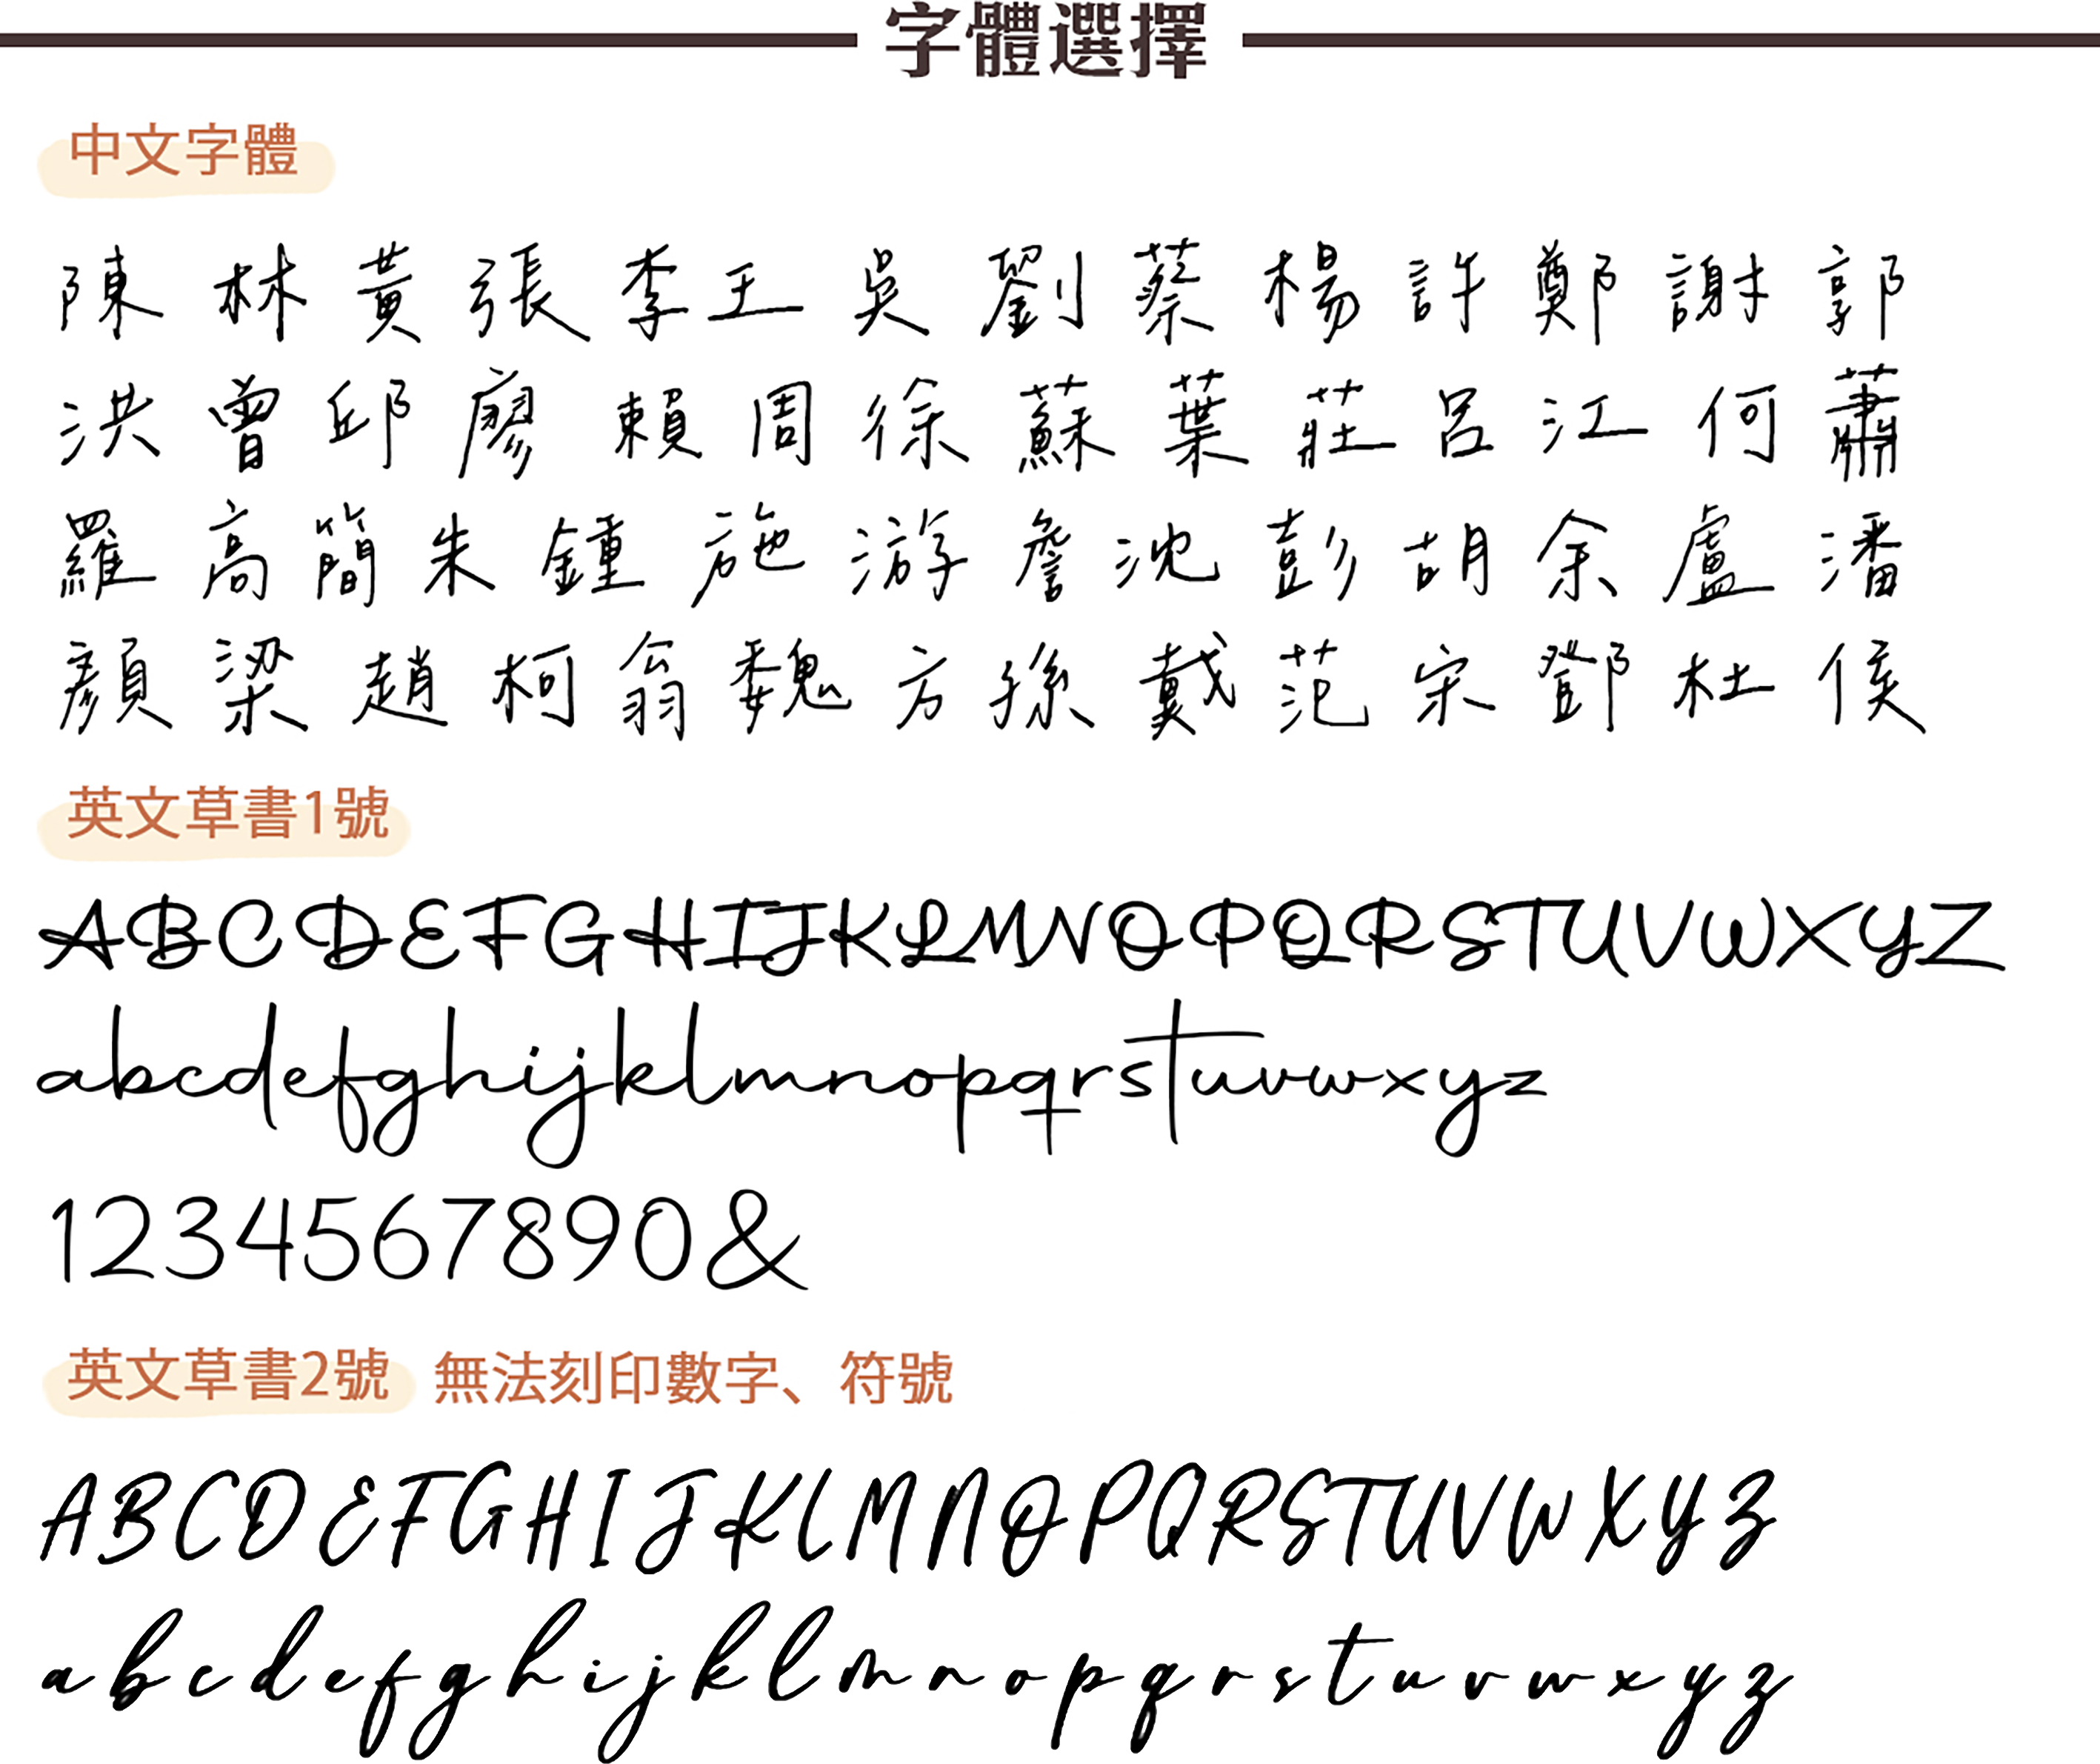 字體選擇
中文字體
陳 林 黃 張 李 王 吳 劉 蔡 楊 許 鄭 謝 郭
洪 曾 邱 廖 賴 周 徐 蘇 葉 莊 呂 江 何 蕭
羅 高 簡 朱 鍾 施 游 詹 沈 彭 胡 余 盧 潘
顏 梁 趙 柯 翁 魏 方 孫 戴 范 宋 鄧 杜 侯
英文草書1號
ABCDEFGHIJKLMNOPQRSTUVWXYZ
abcdefghijklmnopqrstuvwxyz
1234567890&
英文草書2號 無法刻印數字、符號
ABCDEFGHIJKLMNOPQRSTUVWXYZ
abcdefghijklmnopqrstuvwxyz